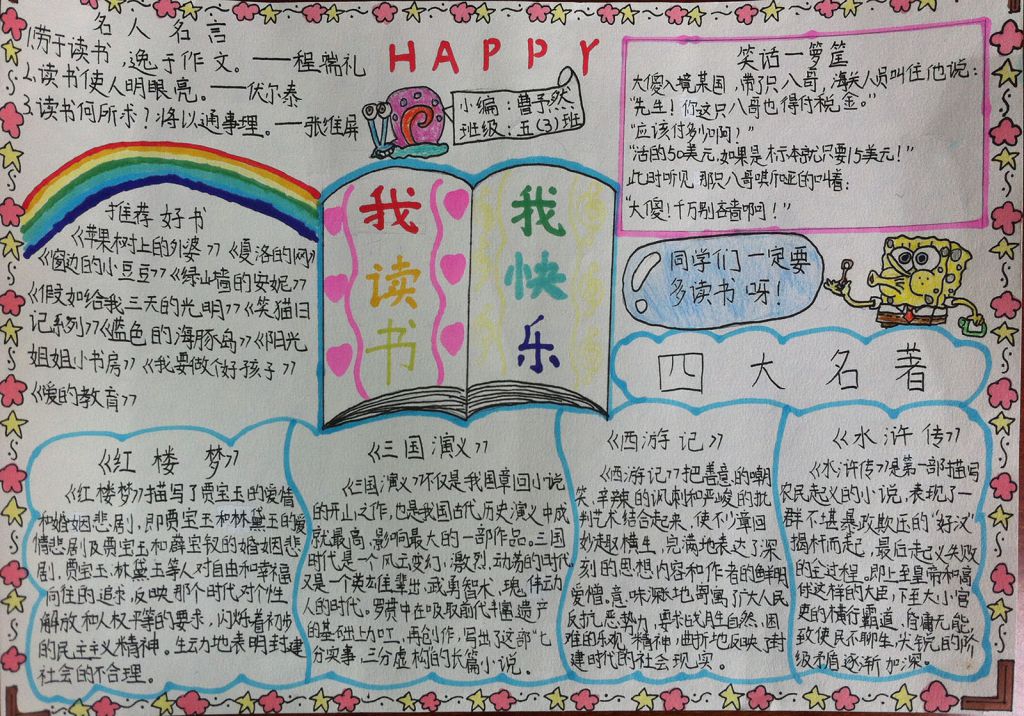 名人名言
1.劳于读书，逸于作文。——程端礼
2.读书使人明眼亮。——伏尔泰
3.读书何所求？将以通事理。——张维屏
HAPPY
小编：曹予然
班级：五(3)班
笑话一箩筐
大傻入境某国，带了只八哥，海关人员叫住他说：
"先生！你这只八哥也得付税金。"
"应该付多少啊？"
"活的50美元，如果是标本就只要15美元！"
此时听见那只八哥嘶哑的叫着：
"大傻！千万别吝啬啊！"
推荐好书
《苹果树上的外婆》《夏洛的网》
《窗边的小豆豆》《绿山墙的安妮》
《假如给我三天的光明》《笑猫日
记系列》《蓝色的海豚岛》《阳光
姐姐小书房》《我要做个好孩子》
《爱的教育》
我读书
我快乐
同学们一定要
多读书呀！
四大名著
《红楼梦》
《红楼梦》描写了贾宝玉的爱情
和婚姻悲剧，即贾宝玉和林黛玉的爱
情悲剧及贾宝玉和薛宝钗的婚姻悲
剧，贾宝玉、林黛玉等人对自由和幸福
向往的追求，反映那个时代对个性
解放和人权平等的要求，闪烁着初步
的民主主义精神。生动地表明封建
社会的不合理。
《三国演义》
《三国演义》不仅是我国章回小说
的开山之作，也是我国古代历史演义中成
就最高，影响最大的一部作品。三国
时代是一个风云变幻，激烈，动荡的时代
又是一个英雄辈出，武勇智术，瑰伟动
人的时代。罗贯中在吸取前代丰富遗产
的基础上加工，再创作，写出了这部"七
分实事，三分虚构的长篇小说。
《西游记》
《西游记》把善意的嘲
笑，辛辣的讽刺和严峻的批
判艺术结合起来，使不少章回
妙趣横生，完满地表达了深
刻的思想内容和作者的鲜明
爱憎。意味深长地寄寓了广大人民
反抗恶势力，要求战胜自然，困
难的乐观"精神，曲折地反映了封
建时代的社会现实。
《水浒传》
《水浒传》是第一部描写
农民起义的小说，表现了一
群不堪暴政欺压的"好汉"
揭杆而起，最后起义失败
的全过程。即上至皇帝和高
俅这样的大臣，下至大小官
吏的横行霸道，昏庸无能，
致使民不聊生，尖锐的阶
级矛盾逐渐加深。